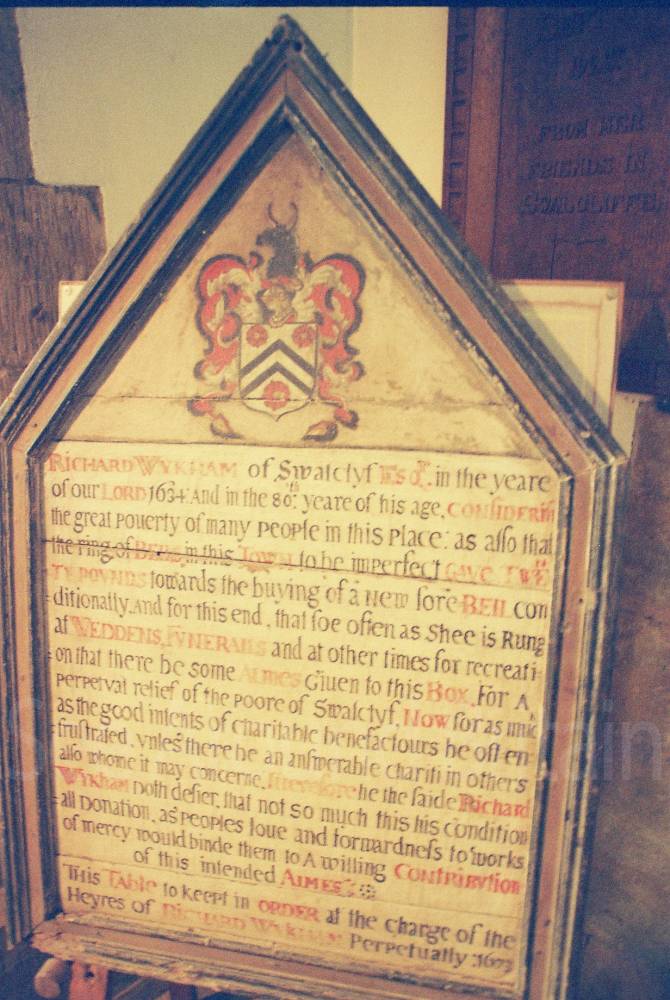 FROM HER
FRIENDS IN
SWALCLIFFE
RICHARD WYKHAM of Swalclyf ESQr. in the yeare
of our LORD 1634 And in the 80th. yeare of his age, CONSIDERIN
the great Pouerty of many PEOPle in this Place: as also that
the ring of BELLS in this TOWN to be imperfect GAVE TWE
TY POVNDS towards the buying of a NEW fore BELL CON
ditionally, and for this end, that soe often as Shee is Rung
at WEDDENS, FVNERALLS and at other times for recreati
on that there be some ALMES Giuen to this BOX, For A
PERPETVAl relief of the poore of Swalclyf, NOW for as muc
as the good intents of charitable benefactours be often
frustrated, vnles there be an answerable chariti in others
also whome it may concerne, therefore he the saide Richard
Wykham doth desier, that not so much this his Condition
all Donation, as PEOPles loue and forwardness to works
of mercy would binde them to A willing CONTRIBVTION
of this intended ALMES:
This TABLE to keept in ORDER at the charge of the
Heyres of RICHARD WYKHAM PERPETUALLY :1673